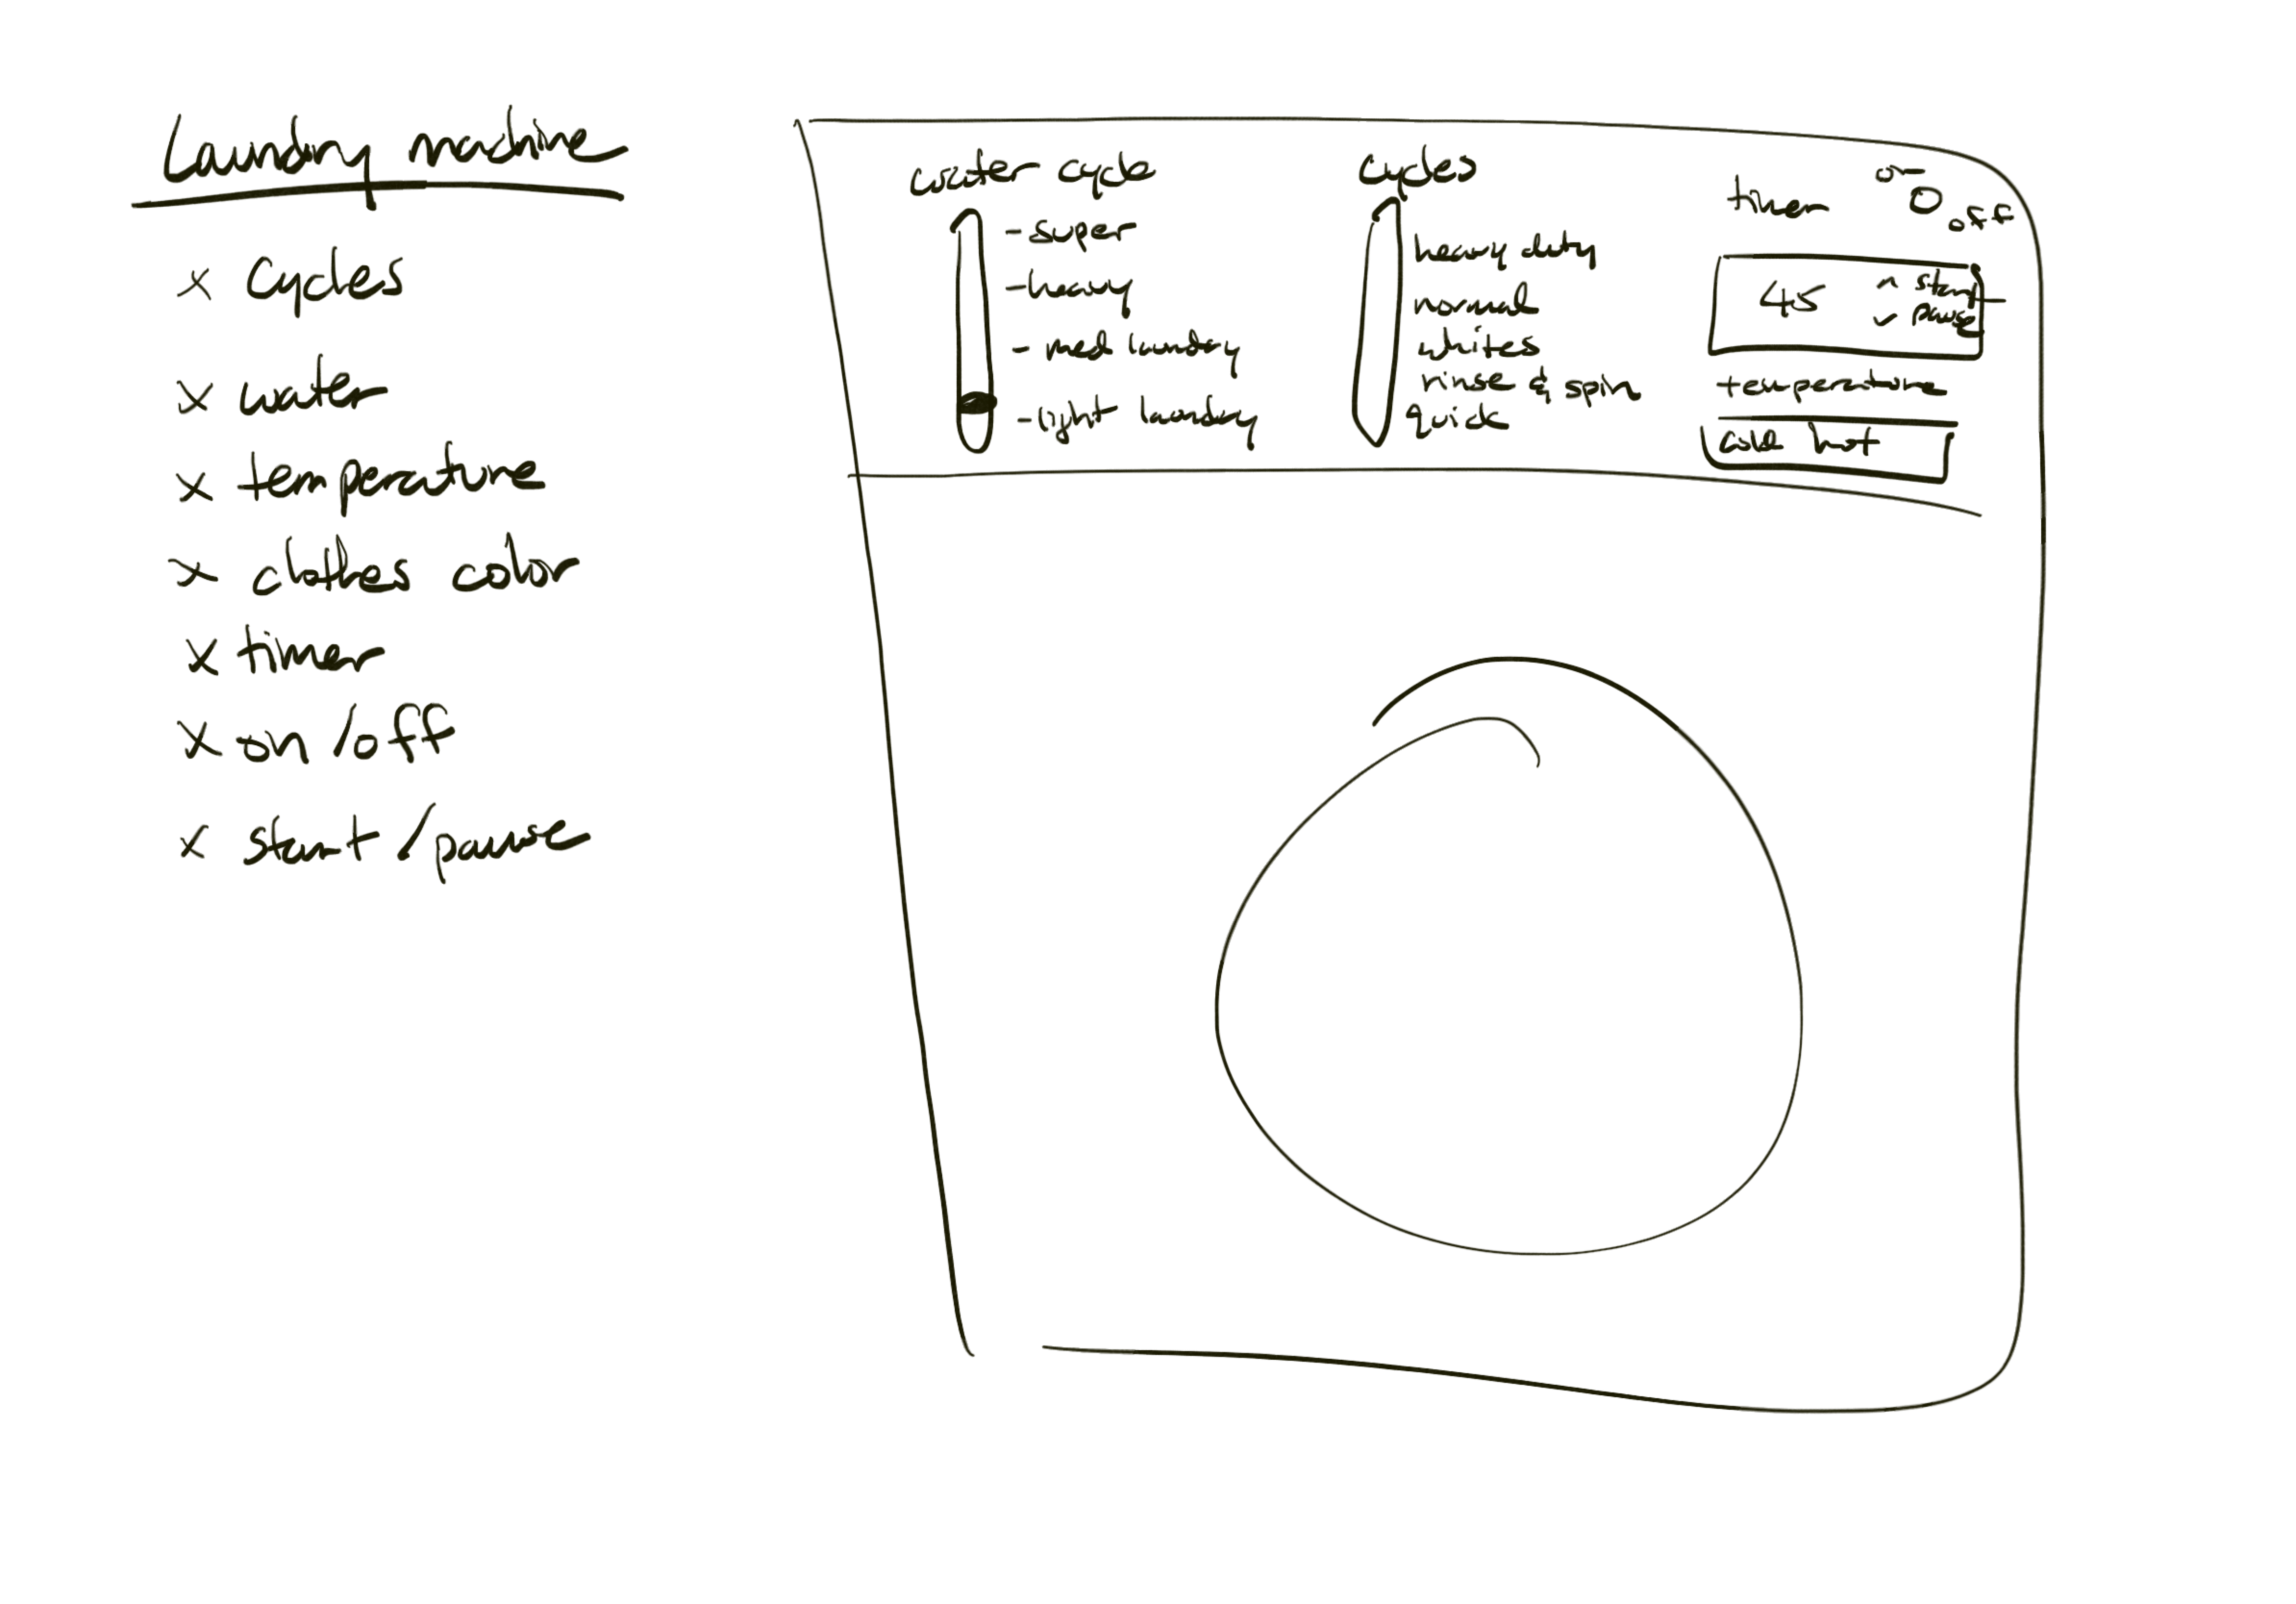 Laundry machine
x cycles
x water
x temperature
x clothes color
x timer
x on/off
x start/pause
water cycle
-super
-heavy
- med laundry
-light laundry
cycles
heavy duty
normal
whites
rinse & spin
quick
timer
on
off
45
^ start
v pause
temperature
cold hot